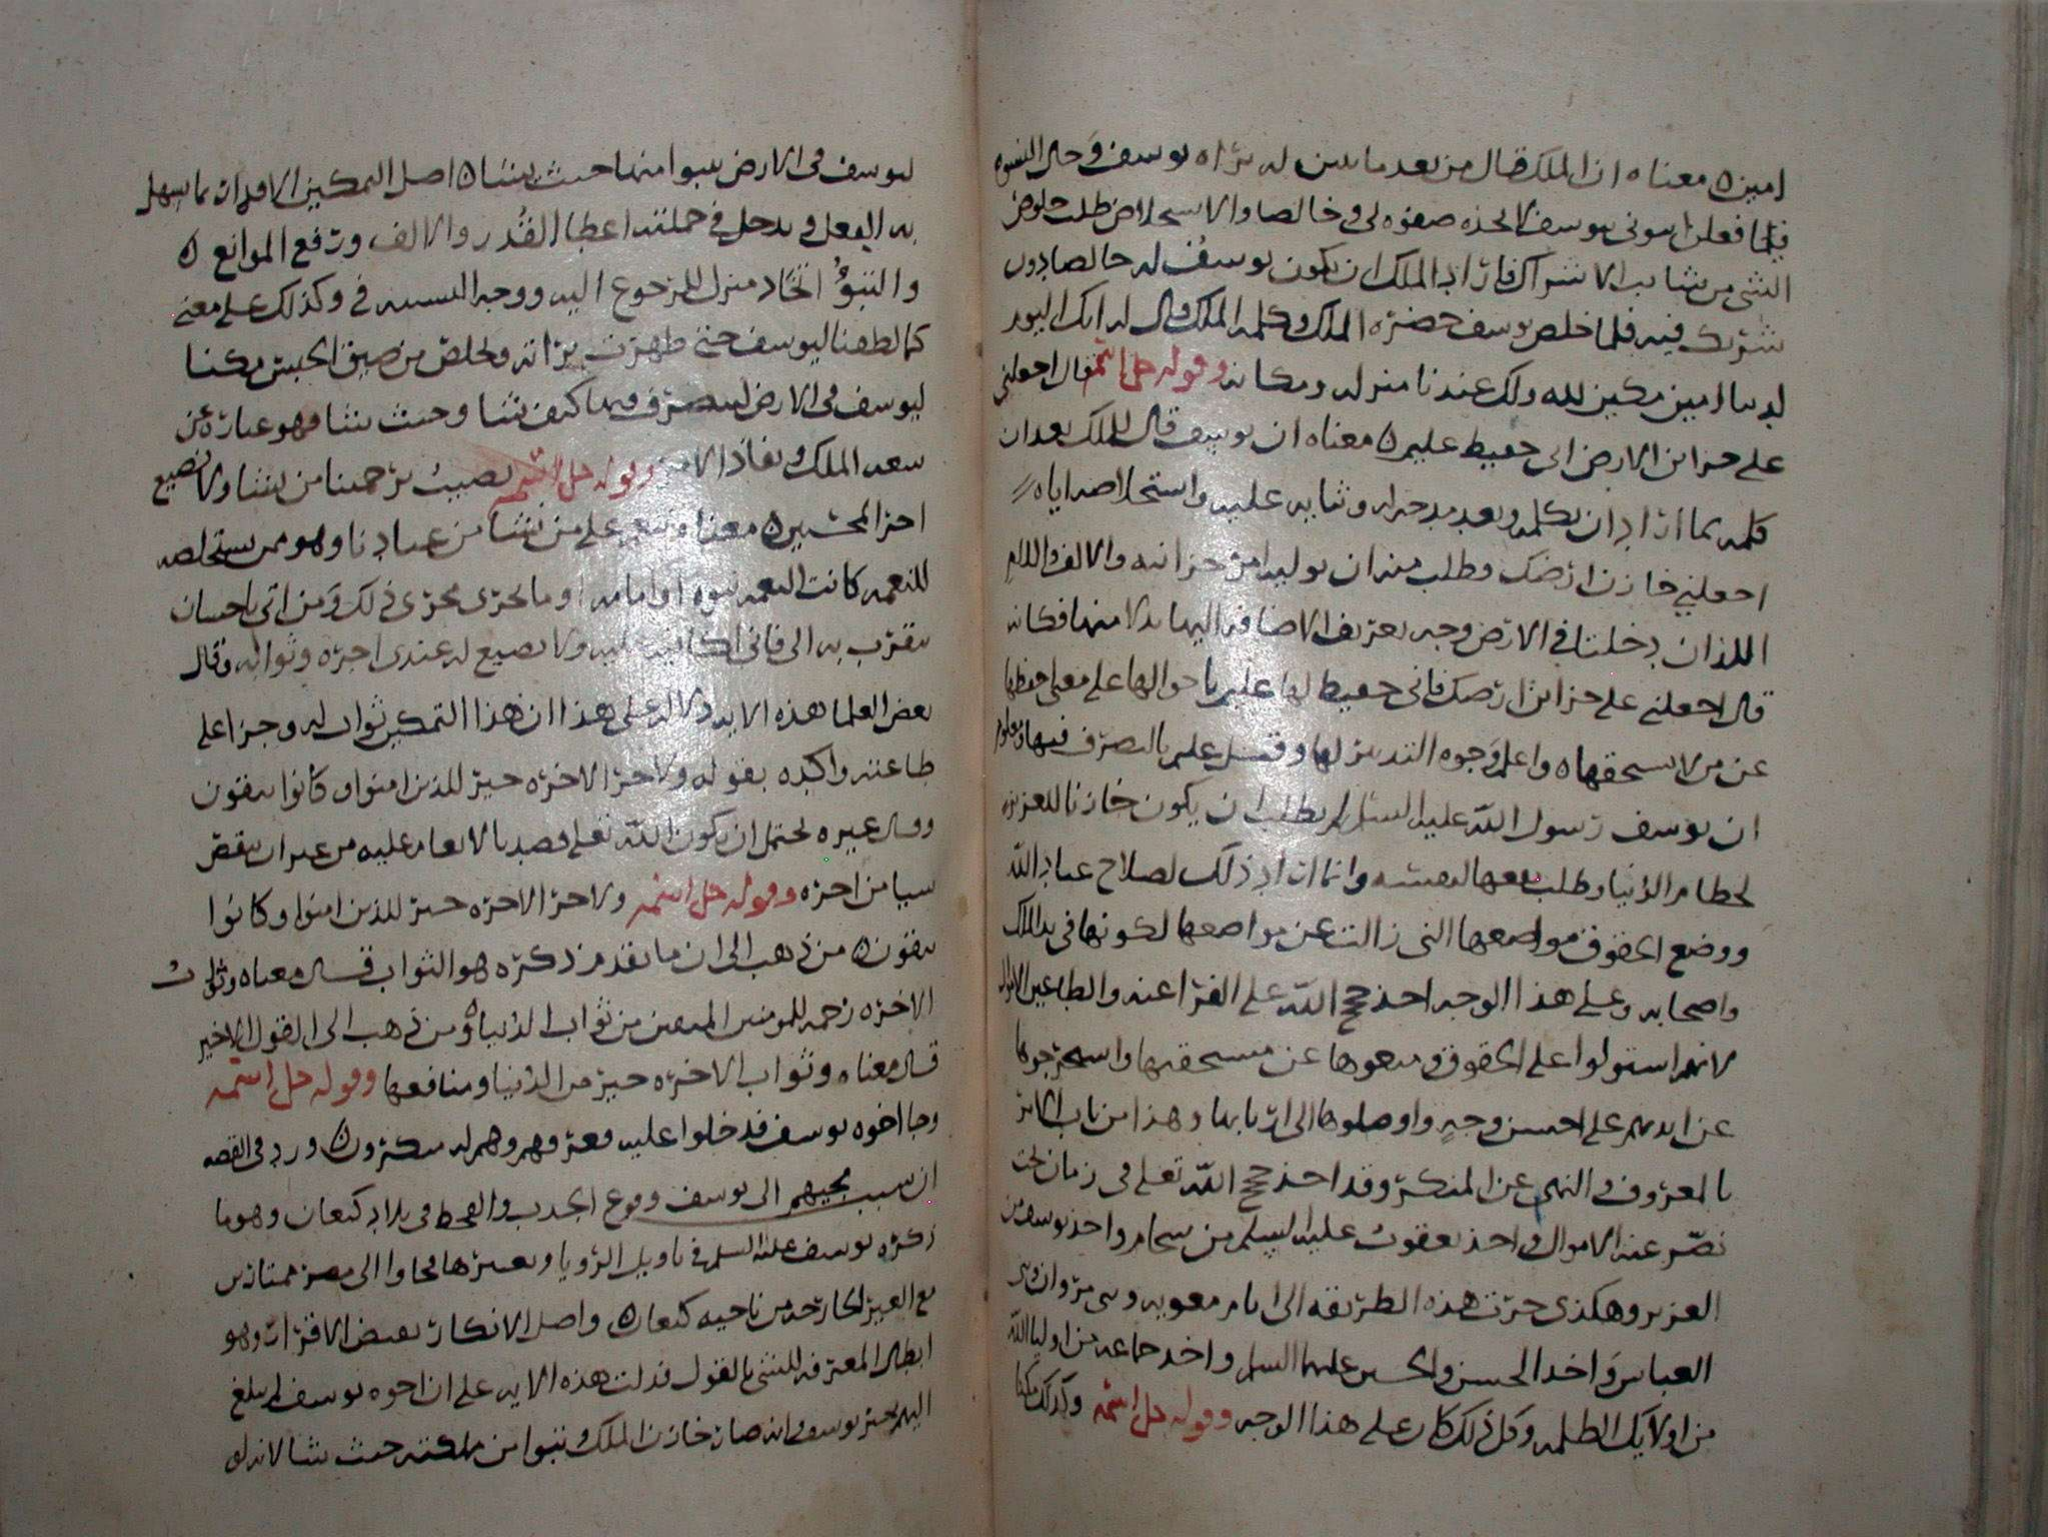 امين معناه ان الملك قال من بعد ما تبين له براه يوسف وحال النسوه
فيما فعلن ايتوني بيوسف لاتخذه صفوه لي وخالصا والاستخلاص طلب خلوص
الشي من شايب الاشراك فاراد الملك ان يكون يوسف له خالصا دون
شريك فيه فلما خلص يوسف حضره الملك وكلمه الملك وقال له انك اليوم
لدينا امين مكين لله ولك عندنا منزله ومكانه وقوله جل اسمه قال اجعلني
على خزاين الارض اني حفيظ عليم معناه ان يوسف قال للملك بعد ان
كلمه بما اراد ان يكلمه وبعد وثنايه عليه واستخلاصه اياه
اجعلني خازن ارضك وطلب منه ان يوليه امر خزاينه والالف واللام
اللذان دخلتا في الارض وجه تعريف الاضافه اليها بدلا منها فكانه
قال اجعلني على خزاين ارضك فاني حفيظ لها عليم باحوالها على معنى حفظها
عن من لا يستحقها واعلم وجوه التدبير لها وقيل عليم بالتصرف فيها ومعلوم
ان يوسف رسول الله عليه السلم لم يطلب ان يكون خازنا للعزيز
لحطام الدنيا وطلب نفعها لنفسه وانما اراد ذلك لصلاح عباد الله
ووضع الحقوق مواضعها التي زالت عن مواضعها لكونها في يد الملك
واصحابه وعلى هذا الوجه اخذ حجج الله على الفراعنه والطاعين الاموال
لانهم استولوا على الحقوق ومنعوها عن مستحقيها واستخرجوها
عن ايديهم على احسن وجه واوصلوها الى اربابها وهذا من باب الامر
بالمعروف والنهي عن المنكر وقد اخذ حجج الله تعلى في زمان بخت
نصر عنه الاموال واخذ يعقوب عليه السلم من واخذ يوسف من
العزيز وهكذى جرت هذه الطريقه الى ايام معويه وبني مروان وبني
العباس واخذ الحسن والحسين عليهما السلم واخذ جماعه من اوليا الله
من اولايك الظلمه وكل ذلك كان على هذا الوجه وقوله جل اسمه وكذلك مكنا
ليوسف في الارض يتبوا منها حيث يشا اصل التمكين الاقدار بما يسهل
به الفعل ويدخل في جملته اعطا القدر والالف ورفع الموانع
والتبوُّ اتخاد منزل للرجوع اليه ووجه التشبيه في وكذلك على معنى
كما لطفنا ليوسف حتى ظهرت براته وتخلص من ضيق الحبس مكنا
ليوسف في الارض ليتصرف فيها كيف يشا وحيث يشا فهو عباره عن
سعه الملك ونفاذ الامر وقوله جل اسمه نصيب برحمتنا من نشا ولا نضيع
اجر المحسنين معناه ننعم على من نشا من عبادنا وهو من يستخلصه
للنعمه كانت النعمه نبوه او امامه او ما يجري مجرى ذلك ومن اتى باحسان
يتقرب به الي فاني اكافيه عليه ولا يضيع له عندى اجره وثوابه وقال
بعض العلما هذه الايه دلاله على هذا ان هذا التمكين ثواب له وجزا على
طاعته واكده بقوله ولاجر الاخره خير للذين امنوا وكانوا يتقون
وقال غيره يحتمل ان يكون الله تعلى قصد بالانعام عليه من غير ان ينقص
شيا من اجره وقوله جل اسمه ولاجر الاخره خير للذين امنوا وكانوا
يتقون من ذهب الى ان ما تقدم ذكره هو الثواب قال معناه وثواب
الاخره رحمه للمومنين المتقين من ثواب الدنيا ومن ذهب الى القول الاخير
قال معناه وثواب الاخره خير من الدنيا ومنافعها وقوله جل اسمه
وجا اخوه يوسف فدخلوا عليه فعرفهم وهم له منكرون ورد في القصه
ان سبب مجيهم الى يوسف وقوع الجدب والقحط في بلاد كنعان وهو ما
ذكره يوسف عليه السلم في تاويل الرويا وتعبيرها فجاوا الى مصر ممتارين
مع العير الخارجه من ناحيه كنعان واصل الانكار نقيض الاقرار وهو
ابطال المعرفه للشي بالقول فدلت هذه الايه على ان اخوه يوسف لم يبلغ
اليهم خبر يوسف وانه صار خازن الملك يتبوا من ملكته حيث يشا لانه لو